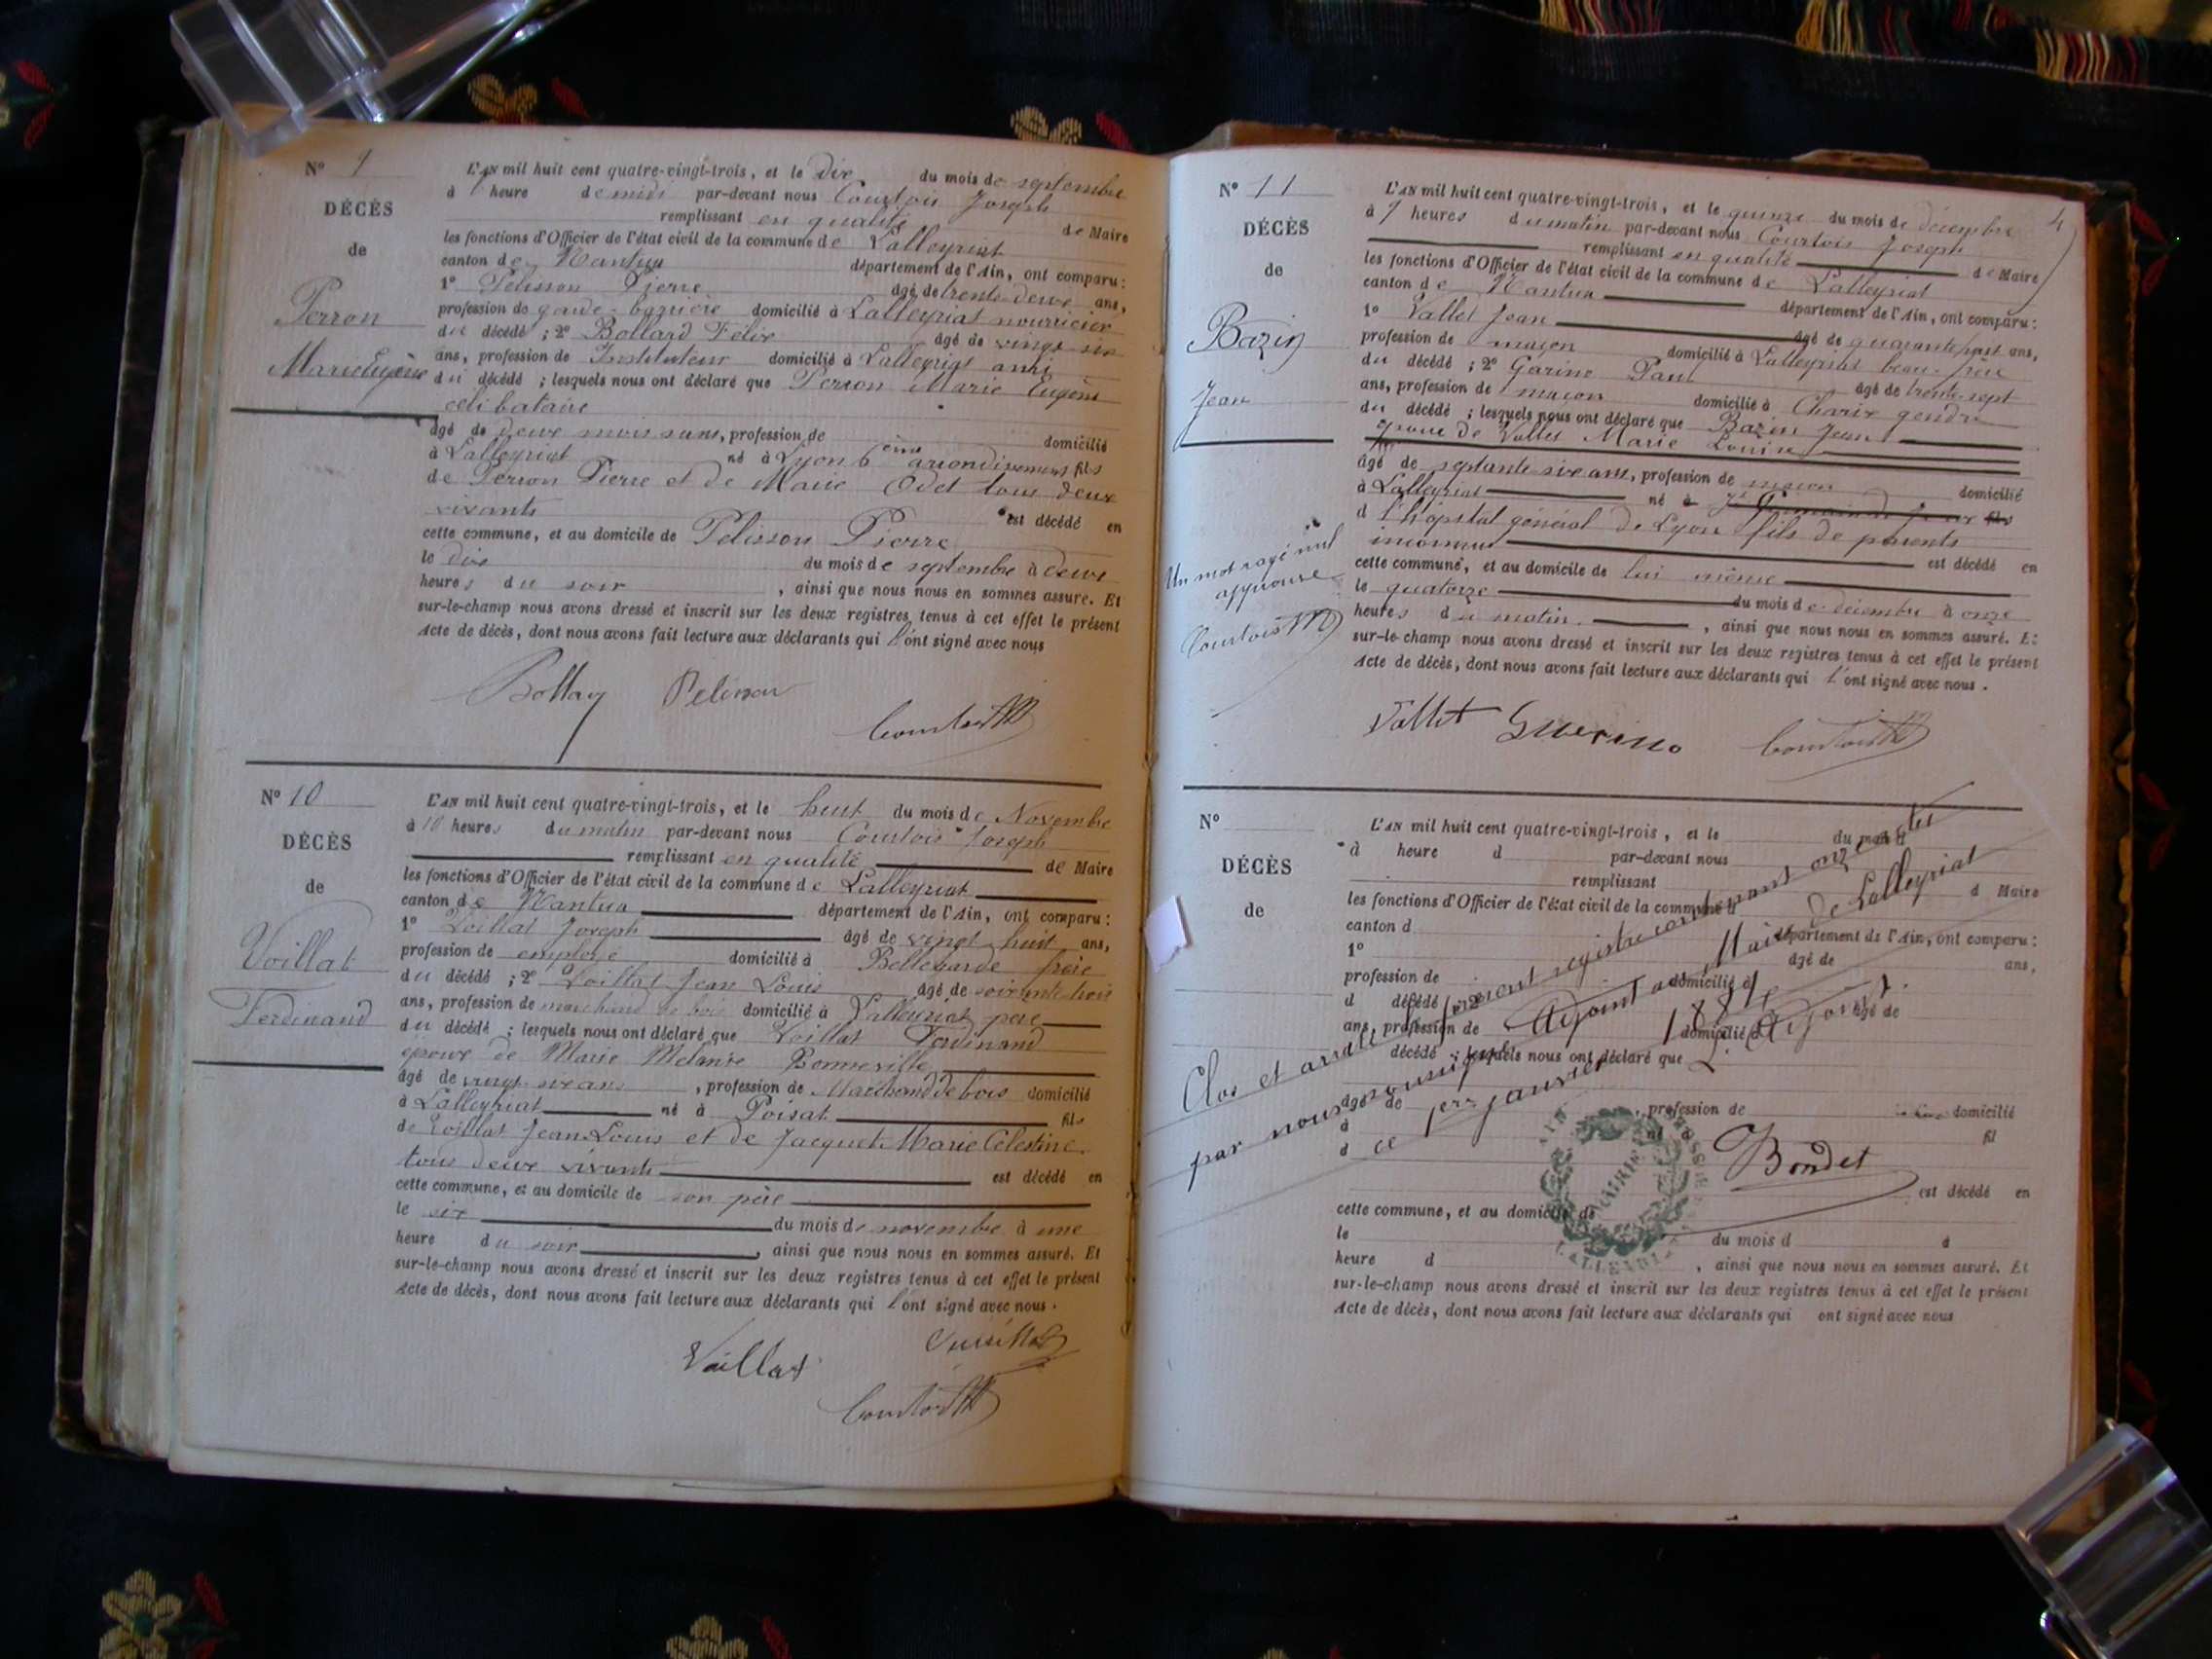 N° 9
DÉCÈS
de
Perron
Marie Eugène
L'AN mil huit cent quatre-vingt-trois, et le dix du mois de septembre
à heure de midi par-devant nous Courtois Joseph
remplissant en qualité de Maire
les fonctions d'Officier de l'état civil de la commune de Lalleyriat
canton de Nantua département de l'Ain, ont comparu :
1° Pelisson Pierre âgé de trente deux ans,
profession de garde-barrière domicilié à Lalleyriat nourricier
du décédé ; 2° Bollard Félix âgé de vingt six
ans, profession de Instituteur domicilié à Lalleyriat ami
du décédé ; lesquels nous ont déclaré que Perron Marie Eugène
célibataire
âgé de deux mois sans, profession de domicilié
à Lalleyriat né à Lyon 6ème arrondissement fils
de Perron Pierre et de Marie Odet tous deux
vivants est décédé en
cette commune, et au domicile de Pelisson Pierre
le dix du mois de septembre à deux
heures du soir , ainsi que nous nous en sommes assuré. Et
sur-le-champ nous avons dressé et inscrit sur les deux registres tenus à cet effet le présent
Acte de décès, dont nous avons fait lecture aux déclarants qui l'ont signé avec nous
Pelisson
Courtois
N° 10
DÉCÈS
de
Voillat
Ferdinand
L'AN mil huit cent quatre-vingt-trois, et le huit du mois de Novembre
à 10 heures du matin par-devant nous Courtois Joseph
remplissant en qualité de Maire
les fonctions d'Officier de l'état civil de la commune de Lalleyriat
canton de Nantua département de l'Ain, ont comparu :
1° Voillat Joseph âgé de vingt huit ans,
profession de employé domicilié à Bellegarde frère
du décédé ; 2° Voillat Jean Louis âgé de soixante trois
ans, profession de marchand de bois domicilié à Lalleyriat père
du décédé ; lesquels nous ont déclaré que Voillat Ferdinand
époux de Marie Mélanie Bonneville
âgé de vingt six ans , profession de Marchand de bois domicilié
à Lalleyriat né à Poisat fils
de Voillat Jean-Louis et de Jacquet Marie Célestine
tous deux vivants est décédé en
cette commune, et au domicile de son père
le six du mois de novembre à une
heure du soir , ainsi que nous nous en sommes assuré. Et
sur-le-champ nous avons dressé et inscrit sur les deux registres tenus à cet effet le présent
Acte de décès, dont nous avons fait lecture aux déclarants qui l'ont signé avec nous.
Voillat
Courtois
4
N° 11
DÉCÈS
de
Bazin
Jean
Un mot rayé nul
approuvé
Courtois
L'AN mil huit cent quatre-vingt-trois, et le quinze du mois de décembre
à 9 heures du matin par-devant nous Courtois Joseph
remplissant en qualité de Maire
les fonctions d'Officier de l'état civil de la commune de Lalleyriat
canton de Nantua département de l'Ain, ont comparu :
1° Vallet Jean âgé de quarante ans,
profession de maçon domicilié à Lalleyriat beau-frère
du décédé ; 2° Garino Paul âgé de trente-sept
ans, profession de maçon domicilié à Charix gendre
du décédé ; lesquels nous ont déclaré que Bazin Jean
époux de Vallet Marie Louise
âgé de septante six ans, profession de maçon domicilié
à Lalleyriat né à
à l'hôpital général de Lyon fils de parents
inconnus est décédé en
cette commune, et au domicile de lui même
le quatorze du mois de décembre à onze
heures du matin , ainsi que nous nous en sommes assuré. Et
sur-le-champ nous avons dressé et inscrit sur les deux registres tenus à cet effet le présent
Acte de décès, dont nous avons fait lecture aux déclarants qui l'ont signé avec nous.
Vallet
Courtois
N°
DÉCÈS
de
L'AN mil huit cent quatre-vingt-trois, et le du mois d
à heure d par-devant nous
remplissant d Maire
les fonctions d'Officier de l'état civil de la commune d
canton d département de l'Ain, ont comparu :
1° âgé de ans,
profession de domicilié à
d décédé ; 2° âgé de
ans, profession de domicilié à
d décédé ; lesquels nous ont déclaré que
âgé de , profession de domicilié
à né à fil
d
est décédé en
cette commune, et au domicile de
le du mois d à
heure d , ainsi que nous nous en sommes assuré. Et
sur-le-champ nous avons dressé et inscrit sur les deux registres tenus à cet effet le présent
Acte de décès, dont nous avons fait lecture aux déclarants qui ont signé avec nous
Clos et arrêté le présent registre contenant onze actes
par nous soussigné Adjoint au Maire de Lalleyriat
ce 1er janvier 1884
L'Adjoint
Bondet
MAIRIE